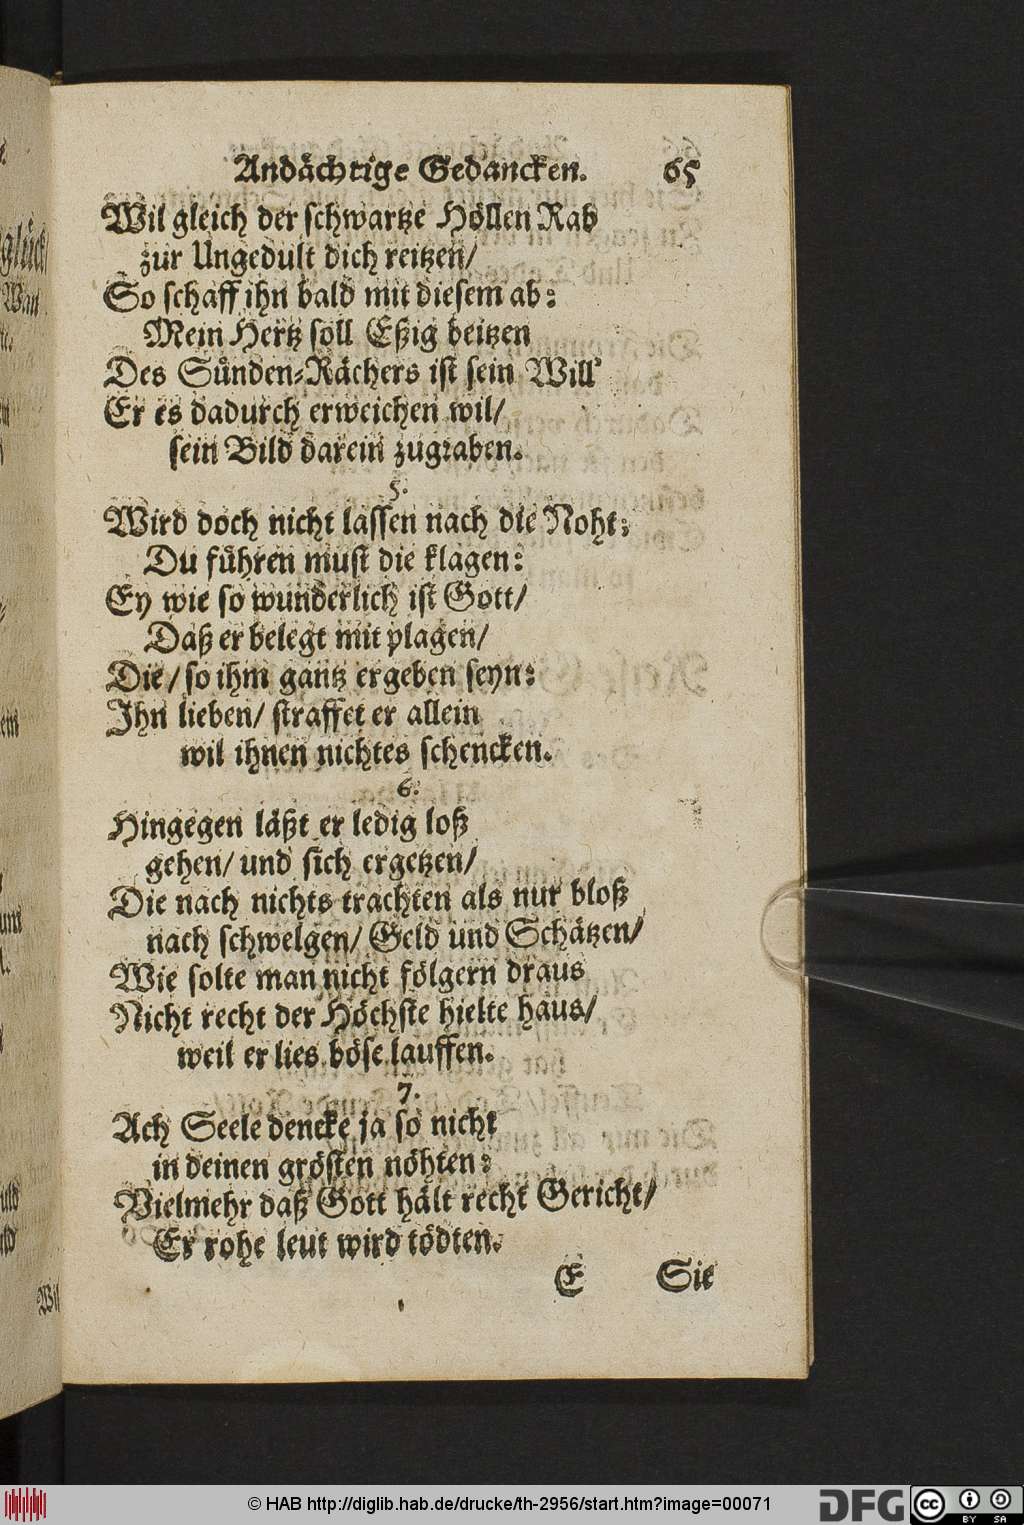 Andächtige Gedancken. 65
Wil gleich der schwartze Höllen Rab
zur Ungedult dich reitzen/
So schaff ihn bald mit diesem ab:
Mein Hertz soll Eßig beitzen
Des Sünden-Rächers ist sein Will'
Er es dadurch erweichen wil/
sein Bild darein zugraben.
5.
Wird doch nicht lassen nach die Noht:
Du führen must die klagen:
Ey wie so wunderlich ist Gott/
Daß er belegt mit plagen/
Die/ so ihm gantz ergeben seyn:
Ihn lieben/ straffet er allein
wil ihnen nichtes schencken.
6.
Hingegen läßt er ledig loß
gehen/ und sich ergetzen/
Die nach nichts trachten als nur bloß
nach schwelgen/ Geld und Schätzen/
Wie solte man nicht fölgern draus
Nicht recht der Höchste hielte haus/
weil er lies böse lauffen.
7.
Ach Seele dencke ja so nicht
in deinen grösten nöhten:
Vielmehr daß Gott hält recht Gericht/
Er rohe leut wird tödten.
E Sie
© HAB http://diglib.hab.de/drucke/th-2956/start.htm?image=00071
DFG cc BY SA